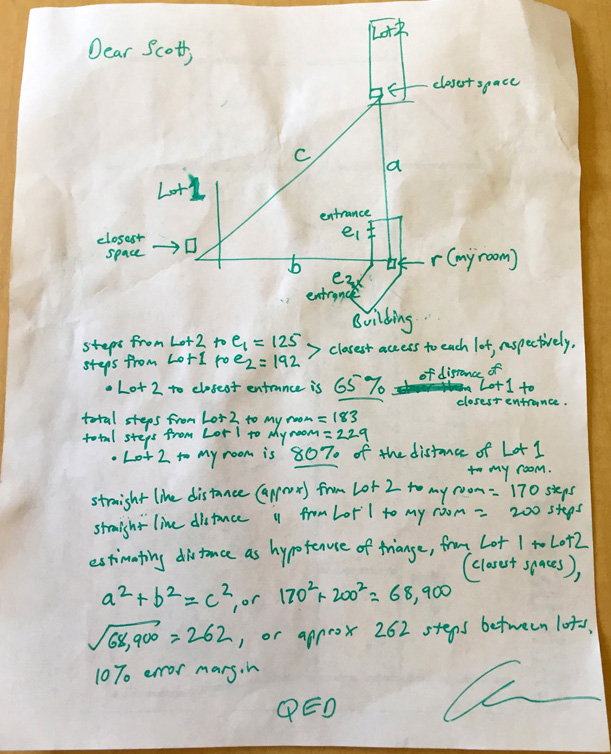 Dear Scott,
Lot 2
closest space
c
a
Lot 1
entrance
e1
closest
space
b
r (my room)
e2
entrance
Building
steps from Lot 2 to e1 = 125
steps from Lot 1 to e2 = 192 > closest access to each lot, respectively.
• Lot 2 to closest entrance is 65% of distance of Lot 1 to
closest entrance.
total steps from Lot 2 to my room = 183
total steps from Lot 1 to my room = 229
• Lot 2 to my room is 80% of the distance of Lot 1
to my room.
straight line distance (approx) from Lot 2 to my room = 170 steps
straight line distance " from Lot 1 to my room = 200 steps
estimating distance as hypotenuse of triange, from Lot 1 to Lot 2
(closest spaces),
a² + b² = c², or 170² + 200² = 68,900
√68,900 = 262, or approx 262 steps between lots.
10% error margin
QED